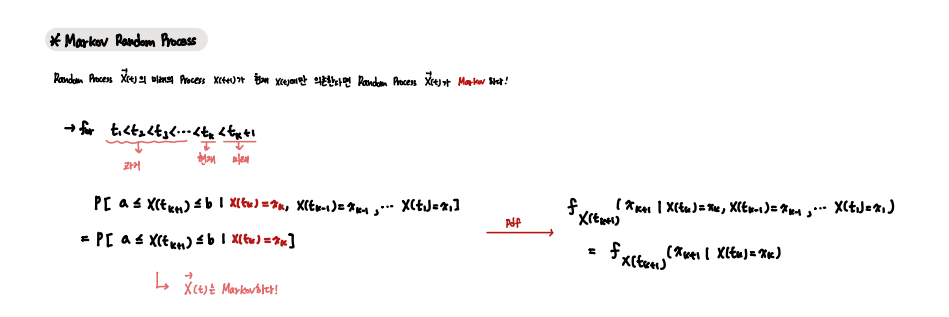 * Markov Random Process
Random Process X⃗(t)의 미래의 Process X(t+1)가 현재 X(t)에만 의존한다면 Random Process X⃗(t)가 Markov 하다!
→ for t₁<t₂<t₃<⋯<tₖ<tₖ+1
과거 현재 미래
P[ a ≤ X(tₖ₊₁) ≤ b | X(tₖ)=xₖ, X(tₖ₋₁)=xₖ₋₁, ⋯ X(t₁)=x₁]
= P[ a ≤ X(tₖ₊₁) ≤ b | X(tₖ)=xₖ]
X⃗(t)는 Markov하다!
pdf
f_X(tₖ₊₁) (xₖ₊₁ | X(tₖ)=xₖ, X(tₖ₋₁)=xₖ₋₁, ⋯ X(t₁)=x₁)
= f_X(tₖ₊₁) (xₖ₊₁ | X(tₖ)=xₖ)